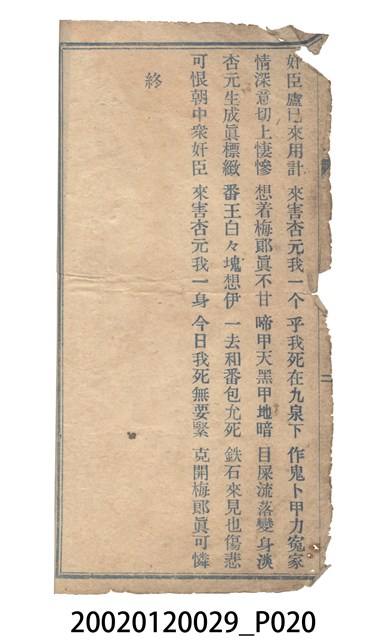 奸臣盧巳來用計 來害杏元我一个 乎我死在九泉下 作鬼卜甲力冤家
情深意切上悽慘 想着梅郎眞不甘 啼甲天黑甲地暗 目屎流落變身淡
杏元生成眞標緻 番王白々塊想伊 一去和番包允死 鉄石來見也傷悲
可恨朝中衆奸臣 來害杏元我一身 今日我死無要緊 克開梅郎眞可憐
終
二
20020120029_P020